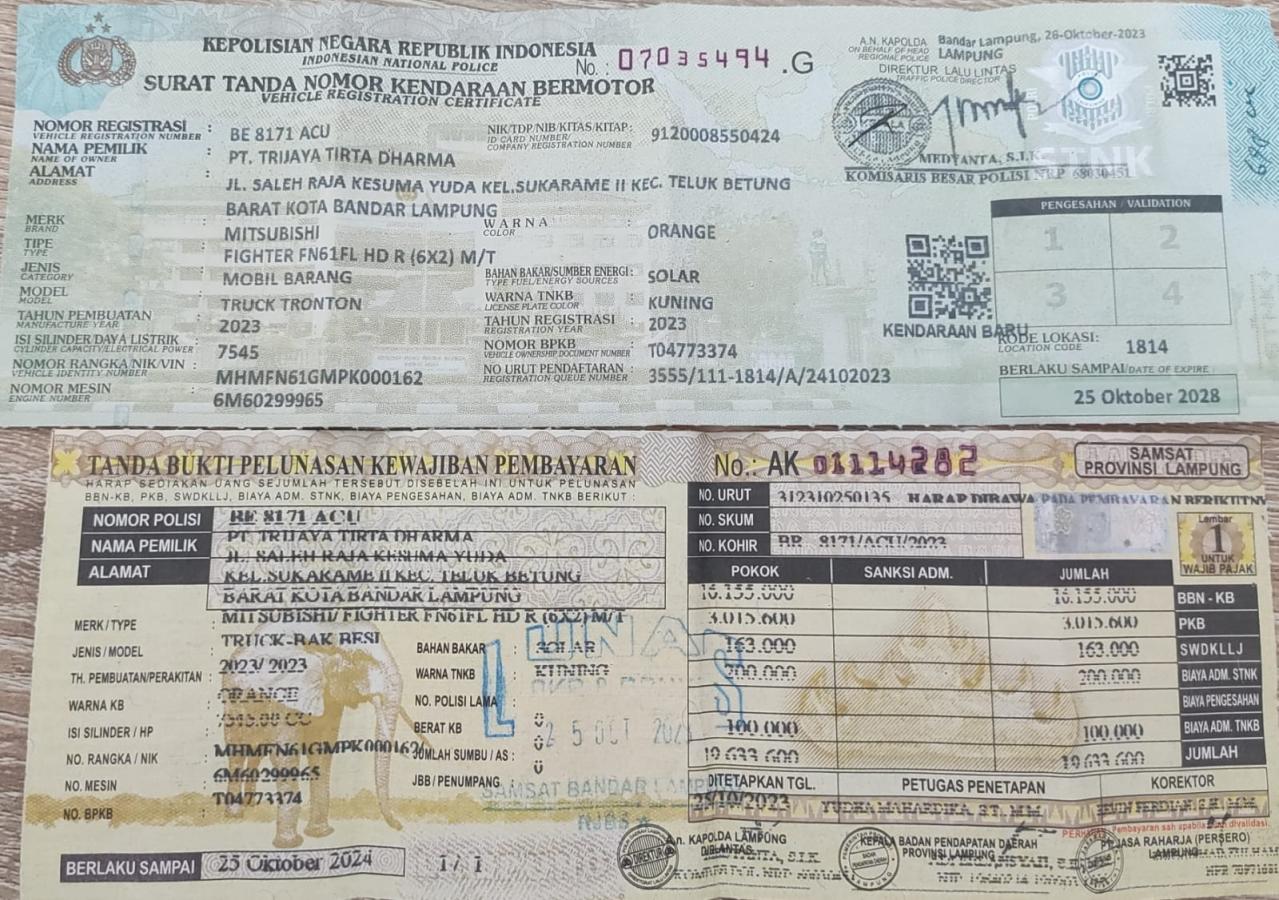 KEPOLISIAN NEGARA REPUBLIK INDONESIA
INDONESIAN NATIONAL POLICE
No.: 07035494 .G
SURAT TANDA NOMOR KENDARAAN BERMOTOR
VEHICLE REGISTRATION CERTIFICATE
A.N. KAPOLDA Bandar Lampung, 26-Oktober-2023
ON BEHALF OF HEAD LAMPUNG
REGIONAL POLICE
DIREKTUR LALU LINTAS
TRAFFIC POLICE DIRECTOR
MEDYANTA, S.I.K
KOMISARIS BESAR POLISI NRP 68030451
STNK
NOMOR REGISTRASI : BE 8171 ACU
VEHICLE REGISTRATION NUMBER
NIK/TDP/NIB/KITAS/KITAP: 9120008550424
ID CARD NUMBER/
COMPANY REGISTRATION NUMBER
NAMA PEMILIK : PT. TRIJAYA TIRTA DHARMA
NAME OF OWNER
ALAMAT : JL. SALEH RAJA KESUMA YUDA KEL.SUKARAME II KEC. TELUK BETUNG
ADDRESS
BARAT KOTA BANDAR LAMPUNG
MERK : MITSUBISHI
BRAND
WARNA : ORANGE
COLOR
TIPE : FIGHTER FN61FL HD R (6X2) M/T
TYPE
JENIS : MOBIL BARANG
CATEGORY
BAHAN BAKAR/SUMBER ENERGI: SOLAR
TYPE FUEL/ENERGY SOURCES
MODEL : TRUCK TRONTON
MODEL
WARNA TNKB : KUNING
LICENSE PLATE COLOR
TAHUN PEMBUATAN : 2023
MANUFACTURE YEAR
TAHUN REGISTRASI : 2023
REGISTRATION YEAR
ISI SILINDER/DAYA LISTRIK : 7545
CYLINDER CAPACITY/ELECTRICAL POWER
NOMOR BPKB : T04773374
VEHICLE OWNERSHIP DOCUMENT NUMBER
NOMOR RANGKA/NIK/VIN : MHMFN61GMPK000162
VEHICLE IDENTITY NUMBER
NO URUT PENDAFTARAN : 3555/111-1814/A/24102023
REGISTRATION QUEUE NUMBER
NOMOR MESIN : 6M60299965
ENGINE NUMBER
PENGESAHAN / VALIDATION
1 2
3 4
KENDARAAN BARU
KODE LOKASI: 1814
LOCATION CODE
BERLAKU SAMPAI/DATE OF EXPIRE
25 Oktober 2028
TANDA BUKTI PELUNASAN KEWAJIBAN PEMBAYARAN
HARAP SEDIAKAN UANG SEJUMLAH TERSEBUT DISEBELAH INI UNTUK PELUNASAN
BBN-KB, PKB, SWDKLLJ, BIAYA ADM. STNK, BIAYA PENGESAHAN, BIAYA ADM. TNKB BERIKUT :
No.: AK 01114282
SAMSAT
PROVINSI LAMPUNG
NOMOR POLISI BE 8171 ACU
NAMA PEMILIK PT. TRIJAYA TIRTA DHARMA
ALAMAT JL. SALEH RAJA KESUMA YUDA
KEL.SUKARAME II KEC. TELUK BETUNG
BARAT KOTA BANDAR LAMPUNG
MERK / TYPE : MITSUBISHI/ FIGHTER FN61FL HD R (6X2) M/T
JENIS / MODEL : TRUCK-BAK BESI
TH. PEMBUATAN/PERAKITAN : 2023/ 2023
WARNA KB : ORANGE
ISI SILINDER / HP : 7545.00 CC
NO. RANGKA / NIK : MHMFN61GMPK000162
NO. MESIN : 6M60299965
NO. BPKB : T04773374
BAHAN BAKAR : SOLAR
WARNA TNKB : KUNING
NO. POLISI LAMA :
BERAT KB : 0
JUMLAH SUMBU / AS : 0
JBB / PENUMPANG : 0
BERLAKU SAMPAI 25 Oktober 2024
1 / 1
LUNAS
25 OCT
SAMSAT BANDAR LAMPUNG
NO. URUT 312310250135 HARAP DIBAWA PADA PEMBAYARAN BERIKUTNY
NO. SKUM
NO. KOHIR BR 8171/ACU/2023
Lembar
1
UNTUK
WAJIB PAJAK
POKOK SANKSI ADM. JUMLAH
16.155.000 16.155.000 BBN - KB
3.015.600 3.015.600 PKB
163.000 163.000 SWDKLLJ
200.000 200.000 BIAYA ADM. STNK
BIAYA PENGESAHAN
100.000 100.000 BIAYA ADM. TNKB
19.633.600 19.633.600 JUMLAH
DITETAPKAN TGL. PETUGAS PENETAPAN KOREKTOR
25/10/2023 YUDHA MAHARDIKA ST. MM
Pembayaran sah apabila divalidasi.
a.n. KAPOLDA LAMPUNG
DIRLANTAS
KEPALA BADAN PENDAPATAN DAERAH
PROVINSI LAMPUNG
PT. JASA RAHARJA (PERSERO)
LAMPUNG